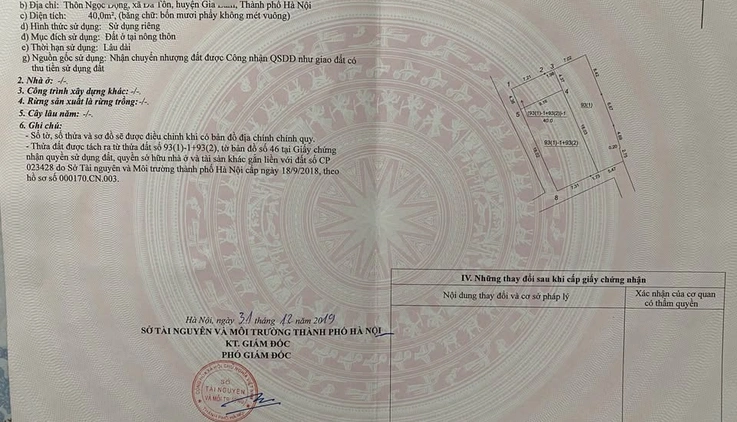 b) Địa chỉ: Thôn Ngọc Động, xã Đa Tốn, huyện Gia Lâm, Thành phố Hà Nội
c) Diện tích: 40,0m², (bằng chữ: bốn mươi phẩy không mét vuông)
d) Hình thức sử dụng: Sử dụng riêng
đ) Mục đích sử dụng: Đất ở tại nông thôn
e) Thời hạn sử dụng: Lâu dài
g) Nguồn gốc sử dụng: Nhận chuyển nhượng đất được Công nhận QSDĐ như giao đất có
thu tiền sử dụng đất
2. Nhà ở: -/-
3. Công trình xây dựng khác: -/-
4. Rừng sản xuất là rừng trồng: -/-
5. Cây lâu năm: -/-
6. Ghi chú:
- Số tờ, số thửa và sơ đồ sẽ được điều chỉnh khi có bản đồ địa chính chính quy.
- Thửa đất được tách ra từ thửa đất số 93(1)-1+93(2), tờ bản đồ số 46 tại Giấy chứng
nhận quyền sử dụng đất, quyền sở hữu nhà ở và tài sản khác gắn liền với đất số CP
023428 do Sở Tài nguyên và Môi trường thành phố Hà Nội cấp ngày 18/9/2018, theo
hồ sơ số 000170.CN.003.
Hà Nội, ngày 31 tháng 12 năm 2019
SỞ TÀI NGUYÊN VÀ MÔI TRƯỜNG THÀNH PHỐ HÀ NỘI
KT. GIÁM ĐỐC
PHÓ GIÁM ĐỐC
SỞ
TÀI NGUYÊN
VÀ MÔI TRƯỜNG
1
2
3
7,21
7,02
4
5
93(1)
93(1)-1+93(2)-1
40,0
93(1)-1+93(2)
8
7,31
1,73
5,47
IV. Những thay đổi sau khi cấp giấy chứng nhận
Nội dung thay đổi và cơ sở pháp lý
Xác nhận của cơ quan
có thẩm quyền